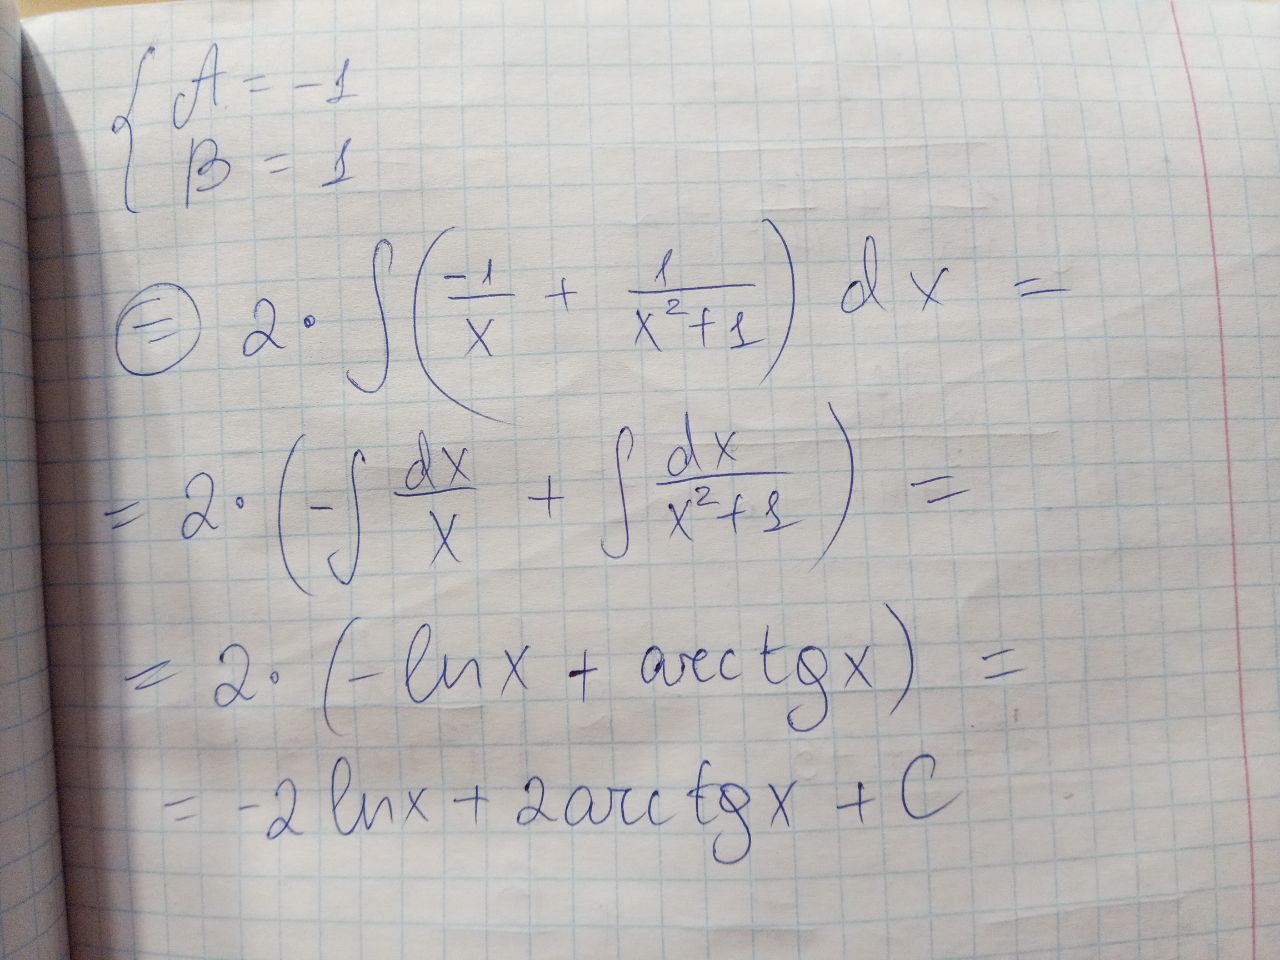 { A = -1
B = 1
⊜ 2 · ∫ ( -1/x + 1/(x²+1) ) dx =
= 2 · ( -∫ dx/x + ∫ dx/(x²+1) ) =
= 2 · ( - ln x + arctg x ) =
= -2 ln x + 2 arctg x + C